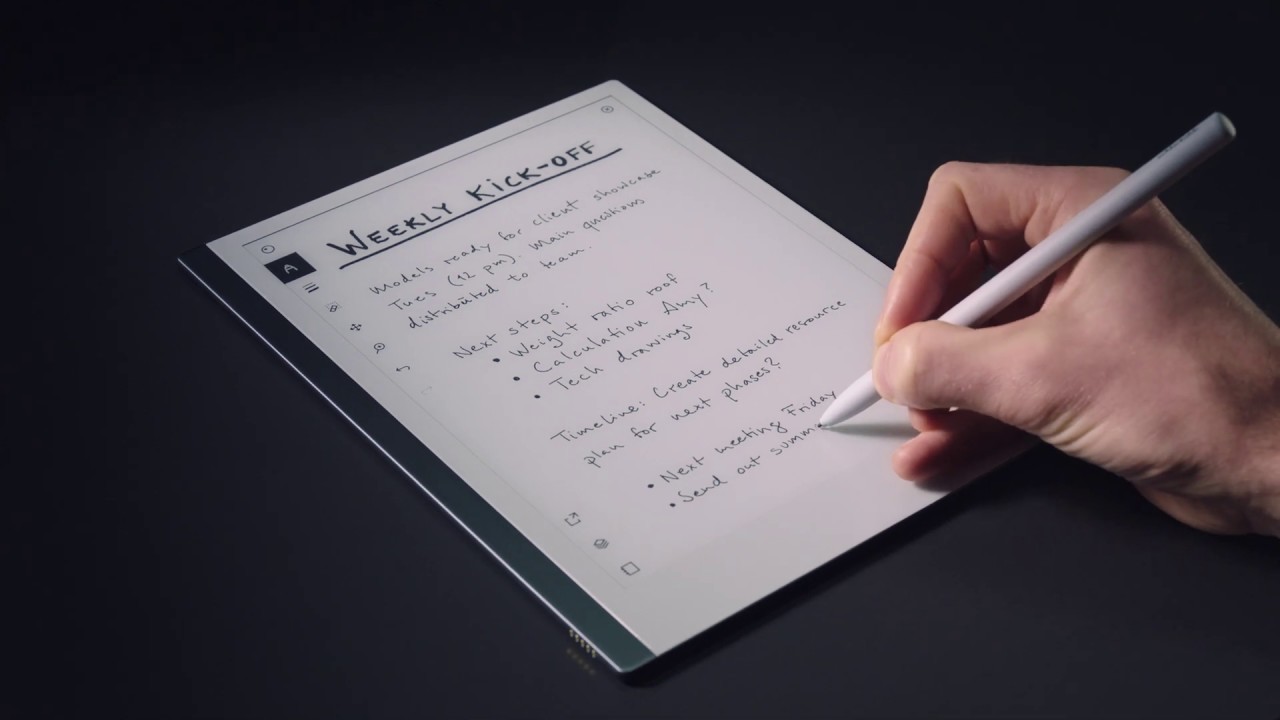 WEEKLY KICK-OFF
Models ready for client showcase
Tues (12 pm). Main questions
distributed to team.
Next steps:
• Weight ratio roof
• Calculation Amy?
• Tech drawings
Timeline: Create detailed resource
plan for next phases?
• Next meeting Friday
• Send out summ
A